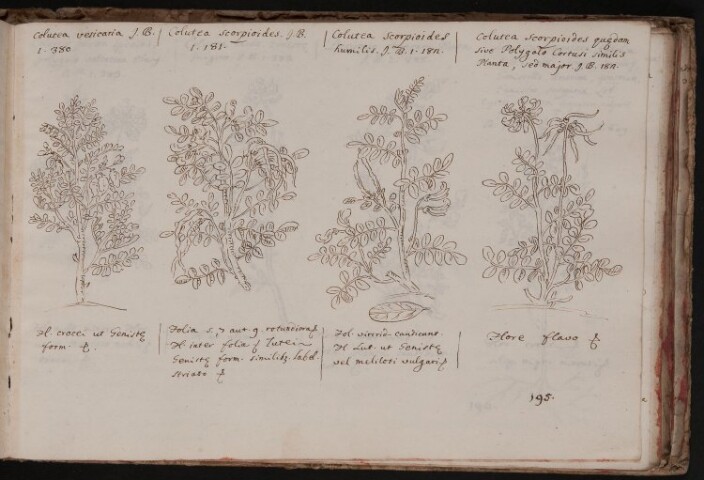 Colutea vesicaria J.B.
1. 380
Colutea scorpioides. J.B.
1. 381.
Colutea scorpioides
humilis. J.B. 1. 382.
Colutea scorpioides quędam
sive Polygalo Cortusi similis
Planta, sed major J.B. 382.
Fl. crocei ut Genistę
form.
Folia 5, 7 aut 9 rotundiora
Fl. inter folia lutei
Genistę form. similibq labol
striato
Fol. virerid. candicant.
Fl. Lut. ut Genistę
vel meliloti vulgaris
Flore flavo
195.